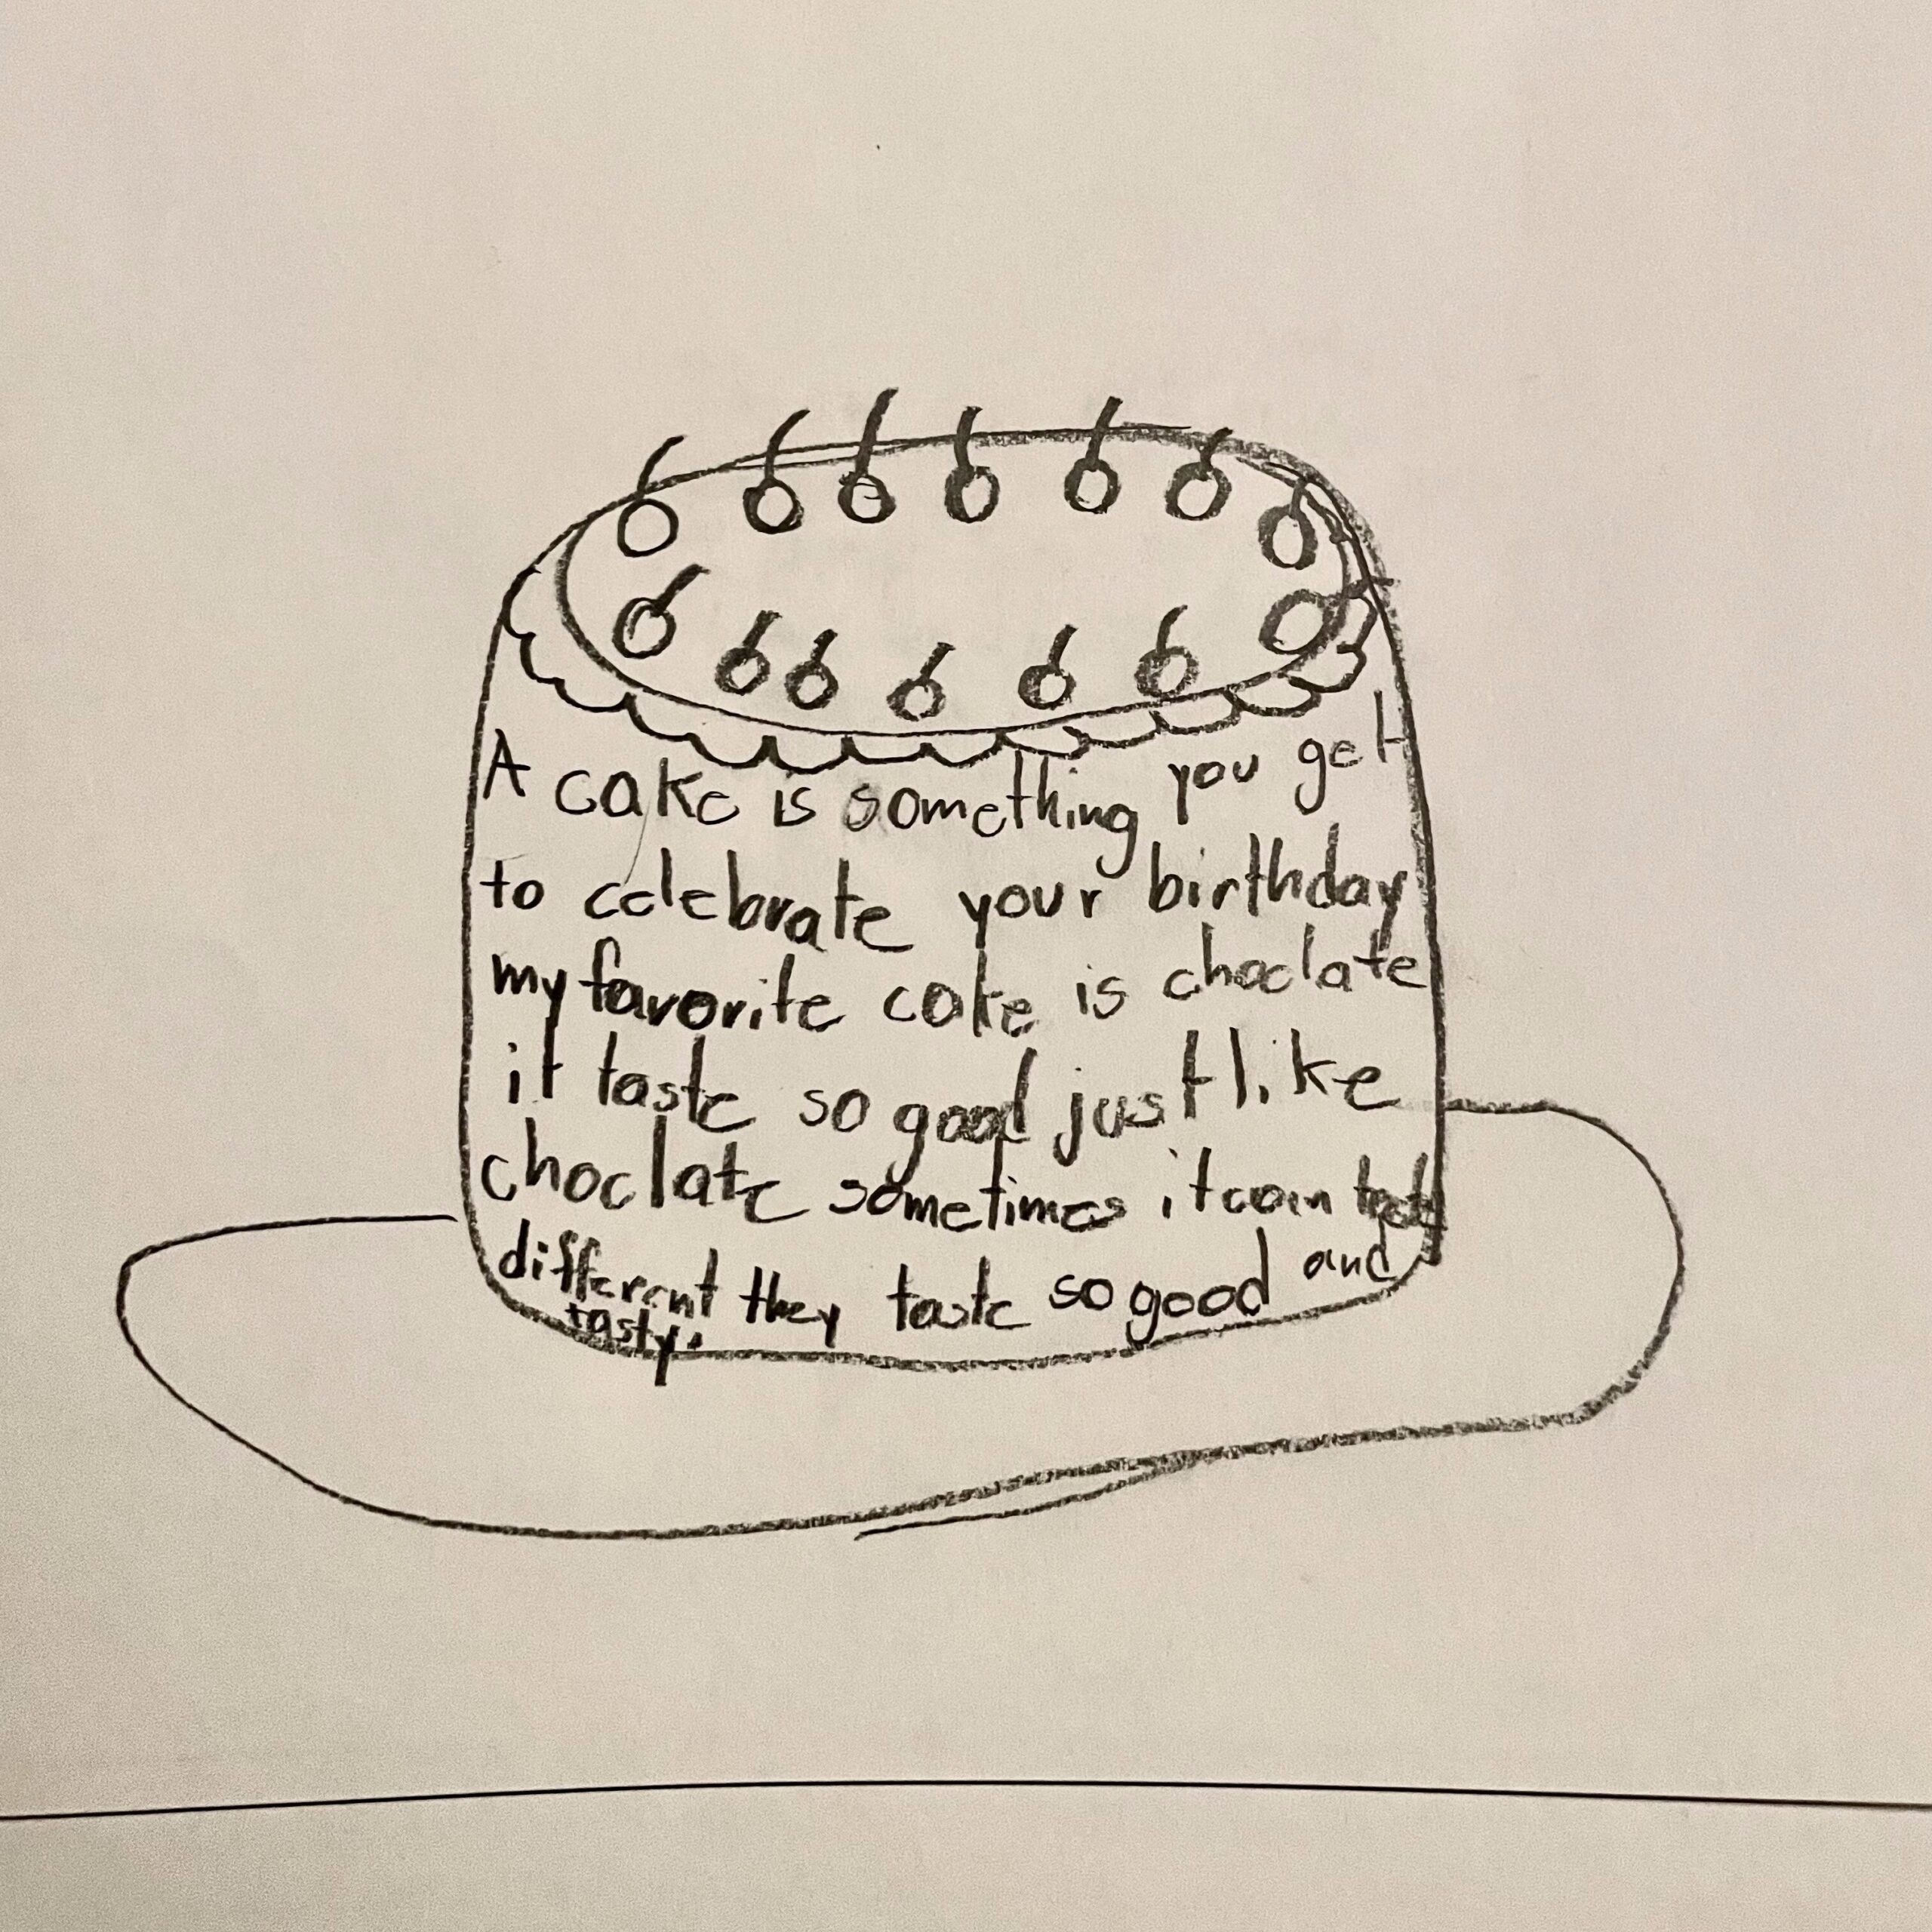 A cake is something you get
to celebrate your birthday
my favorite cake is choclate
it taste so good just like
choclate sometimes it can taste
different they taste so good and
tasty.